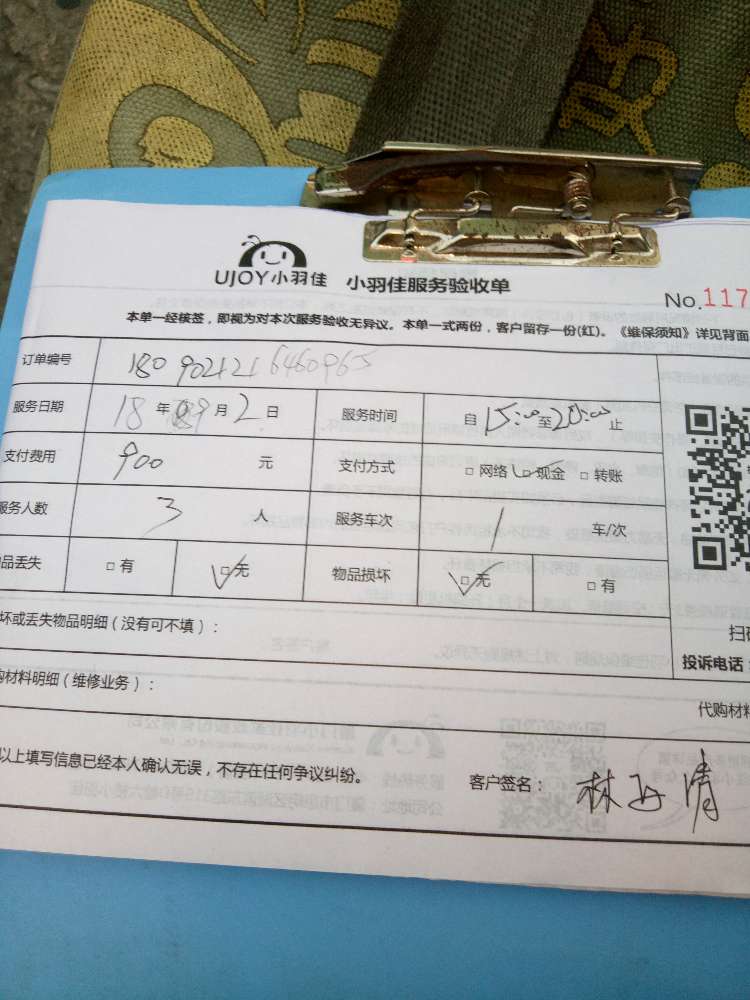 UJOY小羽佳 小羽佳服务验收单
No.117
本单一经核签，即视为对本次服务验收无异议。本单一式两份，客户留存一份(红)。《维保须知》详见背面
订单编号 1809021216460965
服务日期 18年9月2日 服务时间 自15:00至20:00止
支付费用 900 元 支付方式 □网络 □现金 □转账
服务人数 3 人 服务车次 1 车/次
品丢失 □有 □无 物品损坏 □无 □有
坏或丢失物品明细（没有可不填）：
扫
投诉电话
购材料明细（维修业务）：
代购材料
以上填写信息已经本人确认无误，不存在任何争议纠纷。
客户签名：林 清